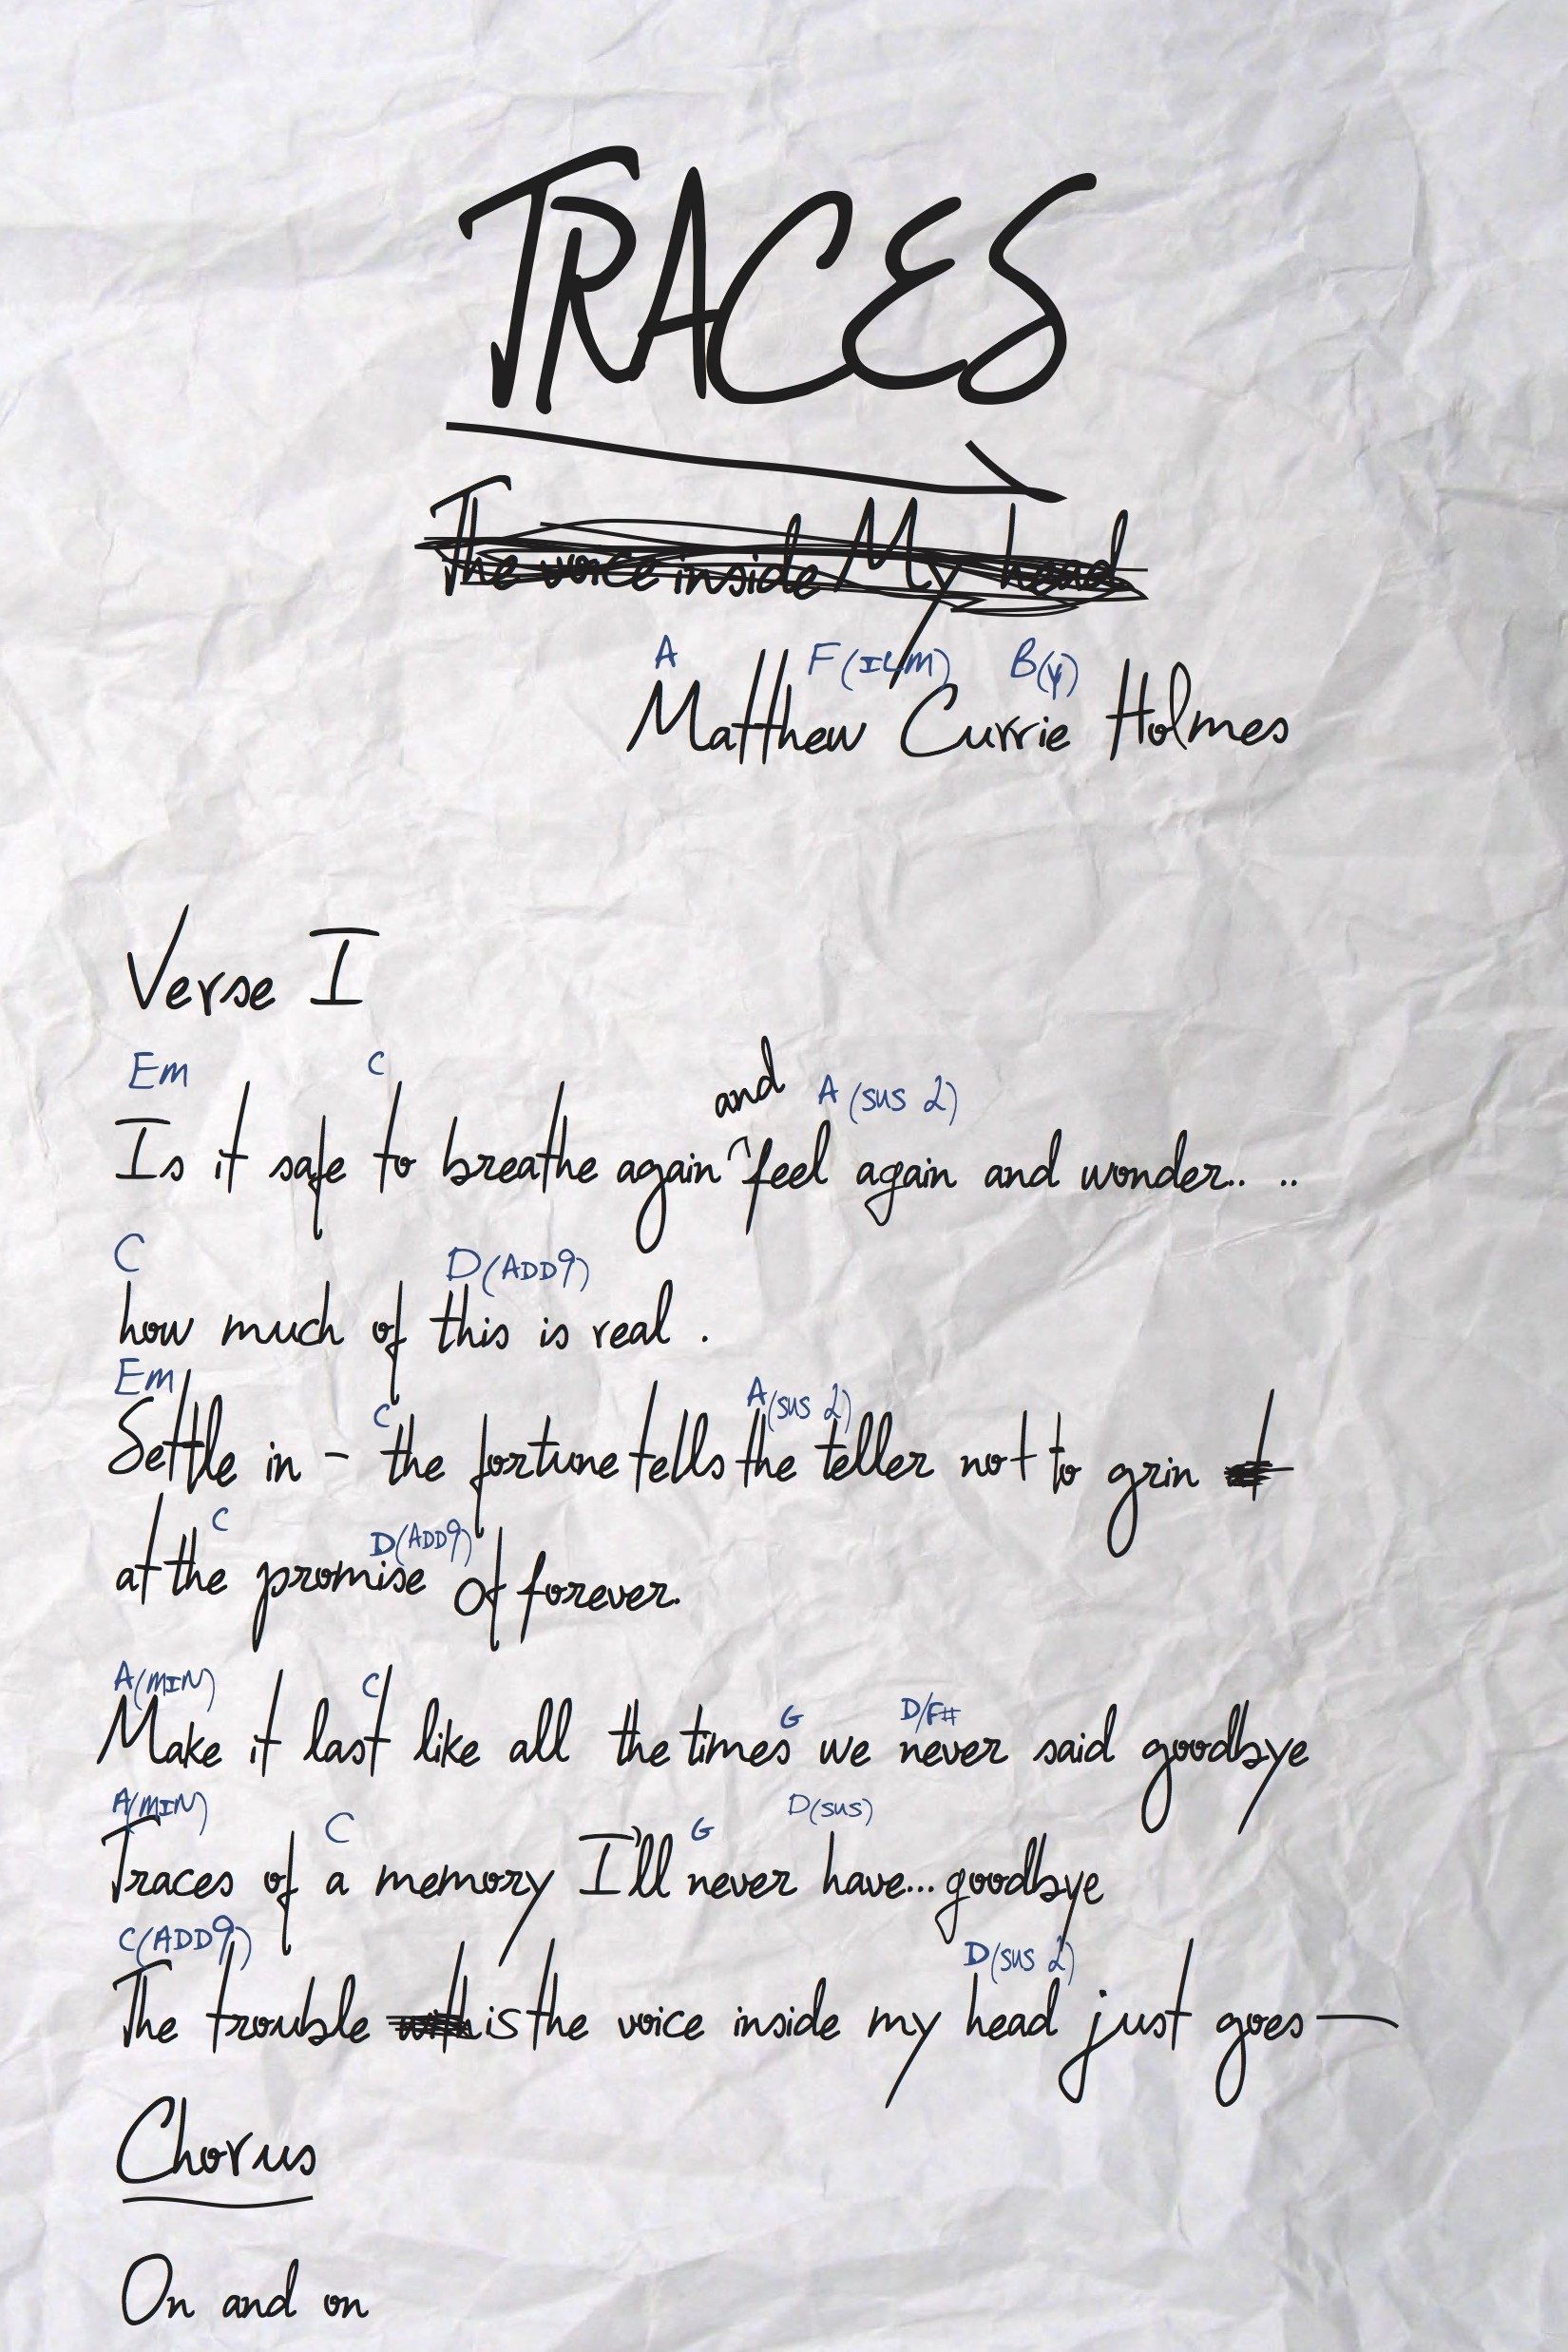 TRACES
The voice inside My head
A F(ILM) B(Y)
Matthew Currie Holmes
Verse I
Em C and A (sus 2)
Is it safe to breathe again ^ feel again and wonder.. ..
C D(ADD9)
how much of this is real .
Em C A(sus 2)
Settle in - the fortune tells the teller not to grin
C D(ADD9)
at the promise Of forever.
A(MIN) C G D/F#
Make it last like all the times we never said goodbye
A(MIN) C G D(sus)
Traces of a memory I'll never have... goodbye
C(ADD9) D(sus 2)
The trouble with is the voice inside my head just goes —
Chorus
On and on